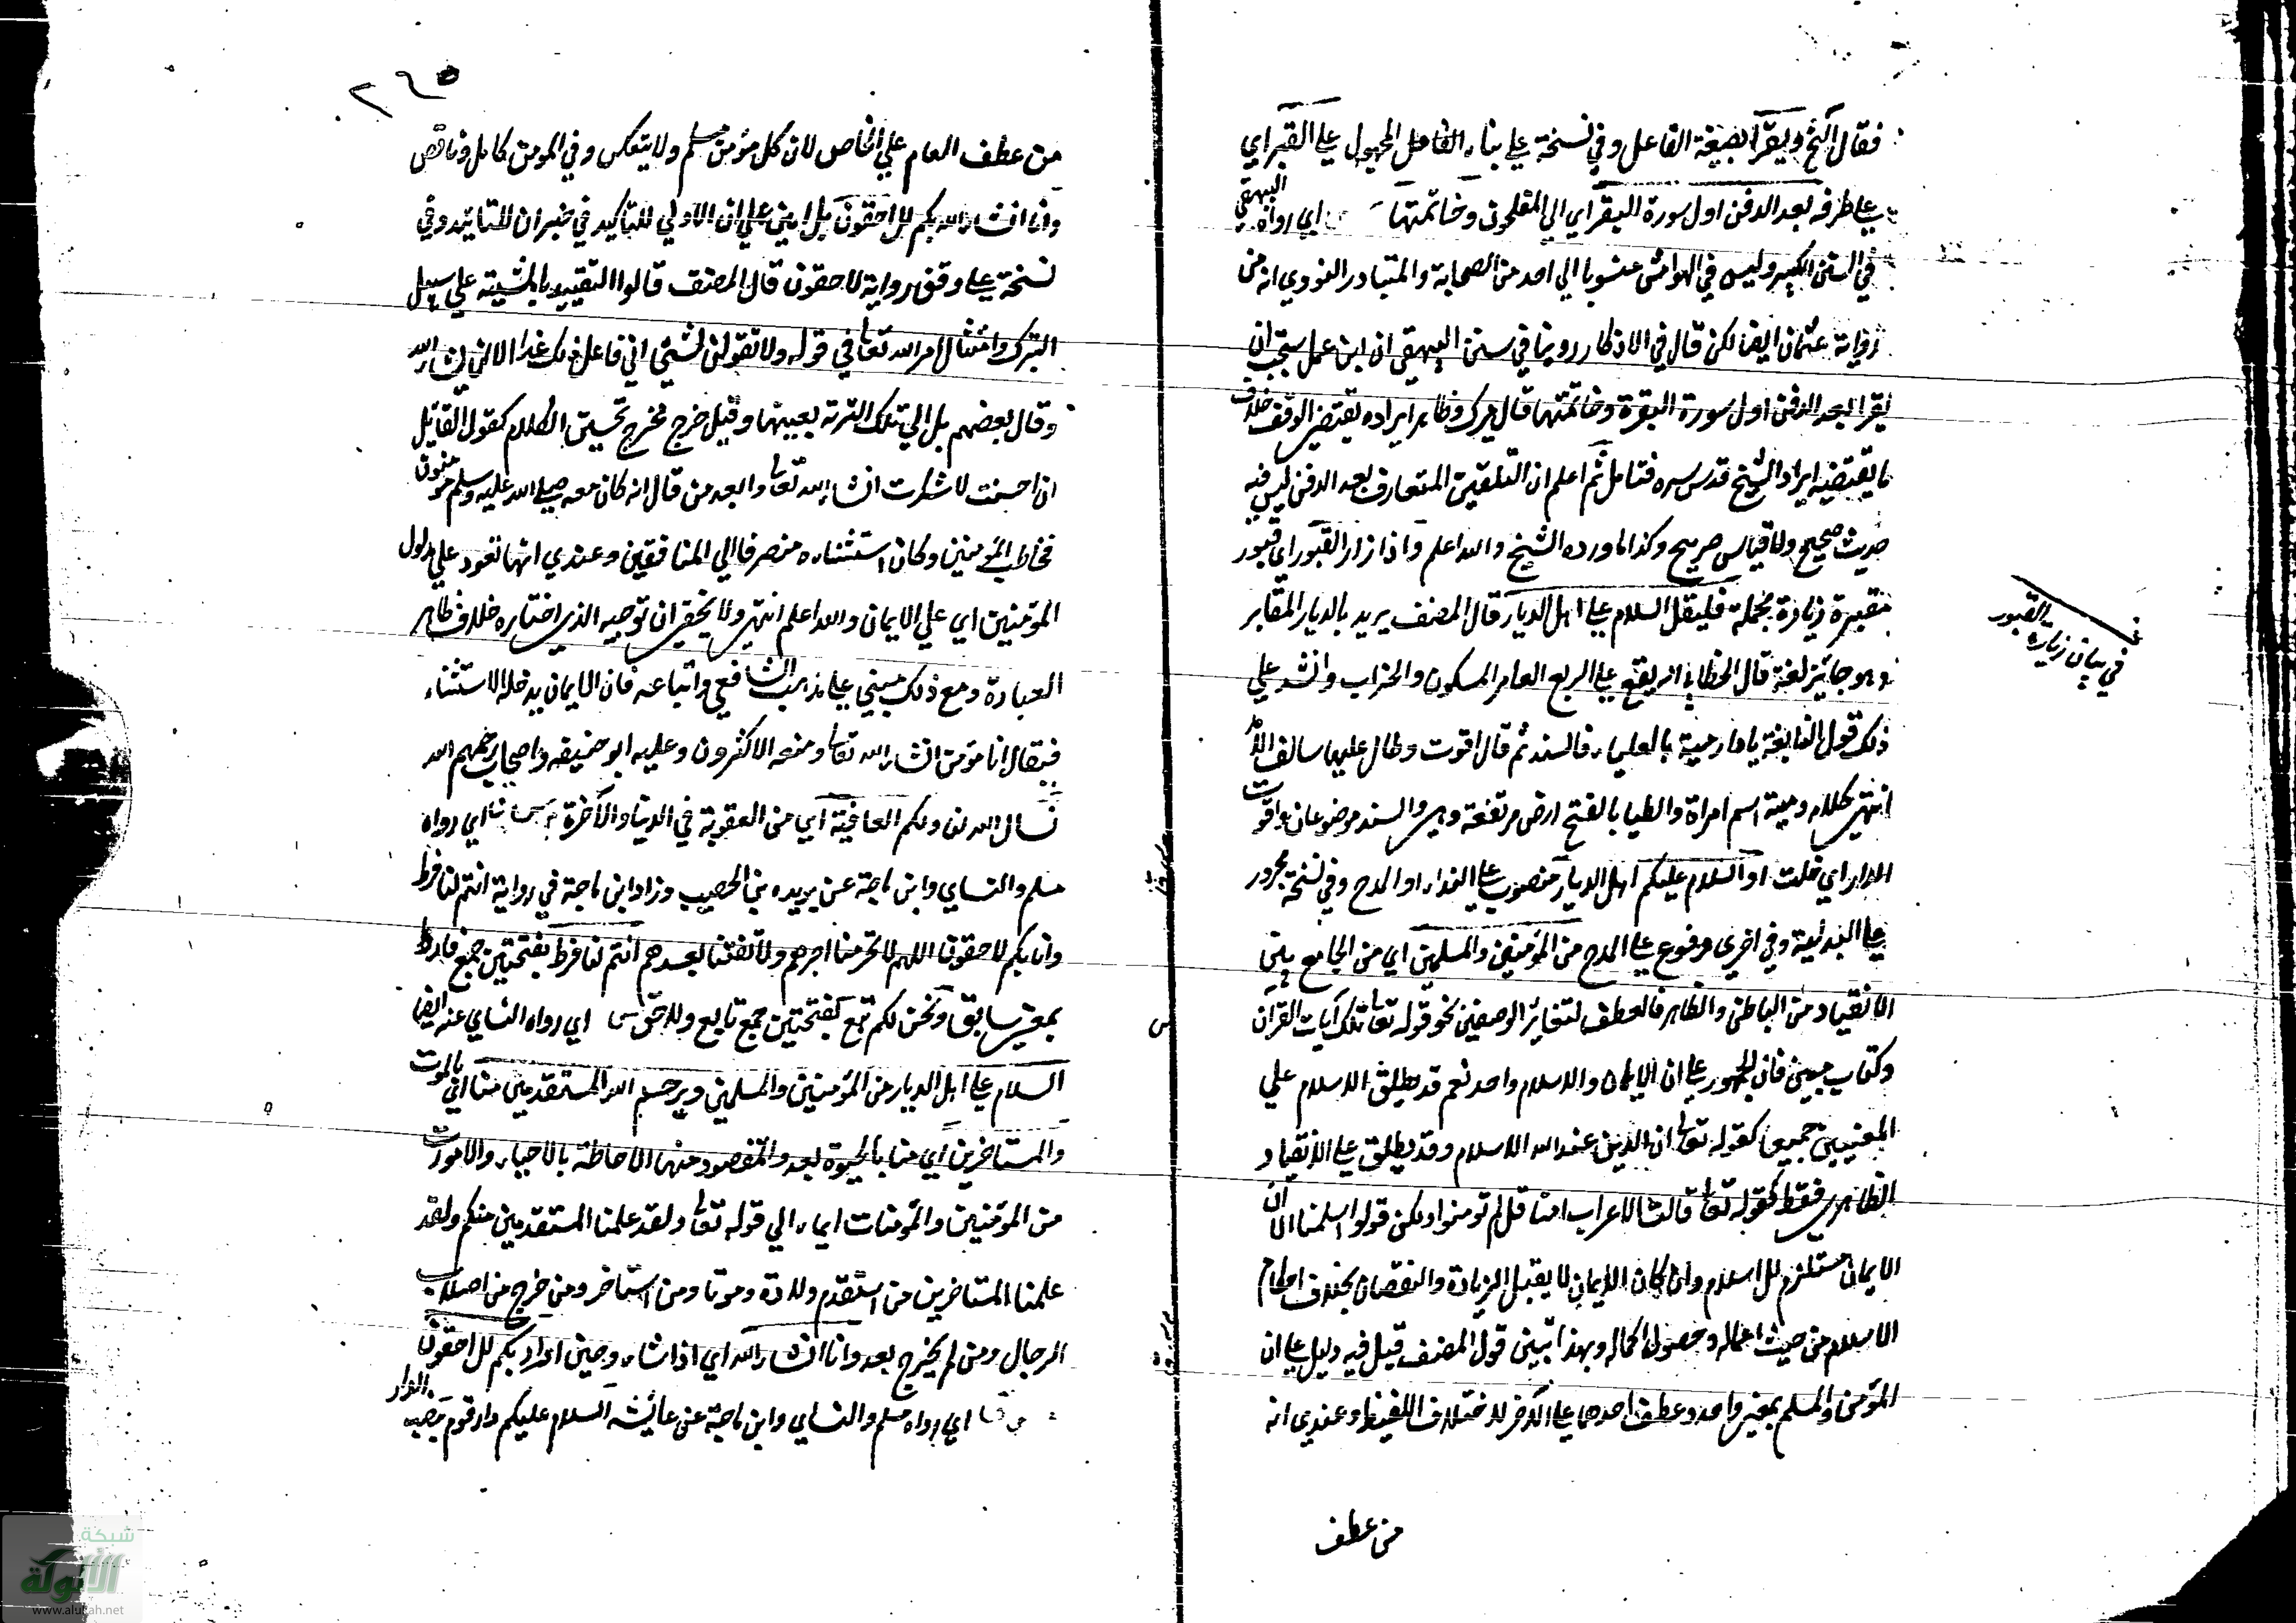 فقال الشخ ويقرأ بصيغة الفاعل وفي نسخة علي بناء الفاعل المجهول علي القبر اي
علي طرفه بعد الدفن اول سورة البقر اي الي المفلحون وخاتمتها اي رواه البيهقي
في السنن الكبير وليس في الهوامش منسوبا الي احد من الصحابة والمتبادر النووي انه من
رواية عثمان ايضا لكن قال في الاذكار روينا في سنن البيهقي ان ابن عمر يستحب ان
يقرا بعد الدفن اول سورة البقرة وخاتمتها قال ميرك وظاهر ايراده يقتضي الوقف خلاف
ما يقتضيه ايراد الشيخ قدس سره فتامل ثم اعلم ان التلقين المتعارف بعد الدفن ليس فيه
حديث صحيح ولا قياس صريح وكذا ما ورده الشيخ والله اعلم واذا زار القبور اي قبور
مقبرة زيارة مجملة فليقل السلام علي اهل الديار قال المصنف يريد بالديار المقابر
وهو جائز لغة قال الخطابي انه يقع علي الربع العامر المسكون والخراب وانشد علي
ذلك قول النابغة يا دار مية بالعلياء فالسند ثم قال اقوت وطال عليها سالف الا
انتهي كلامه ومية اسم امراة والعليا بالفتح ارض مرتفعة وهي والسند موضوعان واقوت
الدار اي خلت او السلام عليكم اهل الديار منصوب علي النداء او المدح وفي نسخة مجرور
علي البدلية وفي اخري مرفوع علي المدح من المؤمنين والمسلمين اي من الجامع بين
الانقياد من الباطن والظاهر فالعطف لتغاير الوصفين نحو قوله تعا تلك آيات القران
وكتاب مبين فان الجمهور علي ان الايمان والاسلام واحد نعم قد يطلق الاسلام علي
المعنيين جميعا كقوله تعا ان الدين عند الله الاسلام وقد يطلق علي الانقياد
الظاهري فقط كقوله تعا قالت الاعراب امنا قل لم تومنوا ولكن قولوا اسلمنا الا ان
الايمان مستلزم للاسلام وان كان الايمان لا يقبل الزيادة والنقصان بخلاف احكام
الاسلام من حيث اعماله وحصول كماله وبهذا تبين قول المصنف قيل فيه دليل علي ان
المؤمن والمسلم بمعني واحد وعطف احدهما علي الآخر لاختلاف اللفظ وعندي انه
من عطف
في بيان زيارة القبور
٢٦٥
من عطف العام علي الخاص لان كل مؤمن مسلم ولا يتعكس وفي المومن كامل وناقص
وانا ان شاء الله بكم للاحقون بلامين علي ان الاولي للتاكيد في خبر ان للتائيد وفي
نسخة علي وفق رواية لاحقون قال المصنف قالوا التقييد بالمشية علي سبيل
التبرك وامتثال امر الله تعا في قوله ولا تقولن لشئ اني فاعل ذلك غدا الا ان يشاء الله
وقال بعضهم بل الي تلك التربة بعينها وقيل خرج مخرج تحسين الكلام كقول القائل
ان احسنت لا شكرت ان شاء الله تعا وابعد من قال انه كان معه صلي الله عليه وسلم مؤمنون
فخاطب المؤمنين وكان استثناءه منصرفا الي المنافقين وعندي انها تعود علي مدلول
المؤمنين اي علي الايمان والله اعلم انتهي ولا يخفي ان توجيه الذي اختاره خلاف ظاهر
العبارة ومع ذلك مبني علي مذهب الشافعي واتباعه فان الايمان يدخله الاستثناء
فيقال انا مؤمن ان شاء الله تعا ومنعه الاكثرون وعليه ابو حنيفه واصحابه رحمهم الله
نسال الله لنا ولكم العافية اي من العقوبة في الدنيا والآخرة م س ق اي رواه
مسلم والنساي وابن ماجة عن بريده بن الحصيب وزاد ابن ماجة في رواية انتم لنا فرط
وانا بكم لاحقون اللهم لا تحرمنا اجرهم ولا تفتنا بعدهم انتم لنا فرط بفتحتين جمع فارط
بمعني سابق ونحن لكم تبع بفتحتين جمع تابع ولاحق س اي رواه النساي عنه ايضا
السلام علي اهل الديار من المؤمنين والمسلمين ويرحم الله المستقدمين منا اي بالموت
والمستاخرين اي منا بالحيوة بعد والمقصود منها الاحاطة بالاحياء والاموات
من المؤمنين والمؤمنات ايماء الي قوله تعا ولقد علمنا المستقدمين منكم ولقد
علمنا المستاخرين من استقدم ولادة وموتا ومن استاخر ومن خرج من اصلاب
الرجال ومن لم يخرج بعد وانا ان شاء الله اي اذا شاء وحين اراد بكم للاحقون
م س ق اي رواه مسلم والنساي وابن ماجة عن عائشه السلام عليكم دار قوم بنصب الدار
شبكة
الألوكة
www.alukah.net